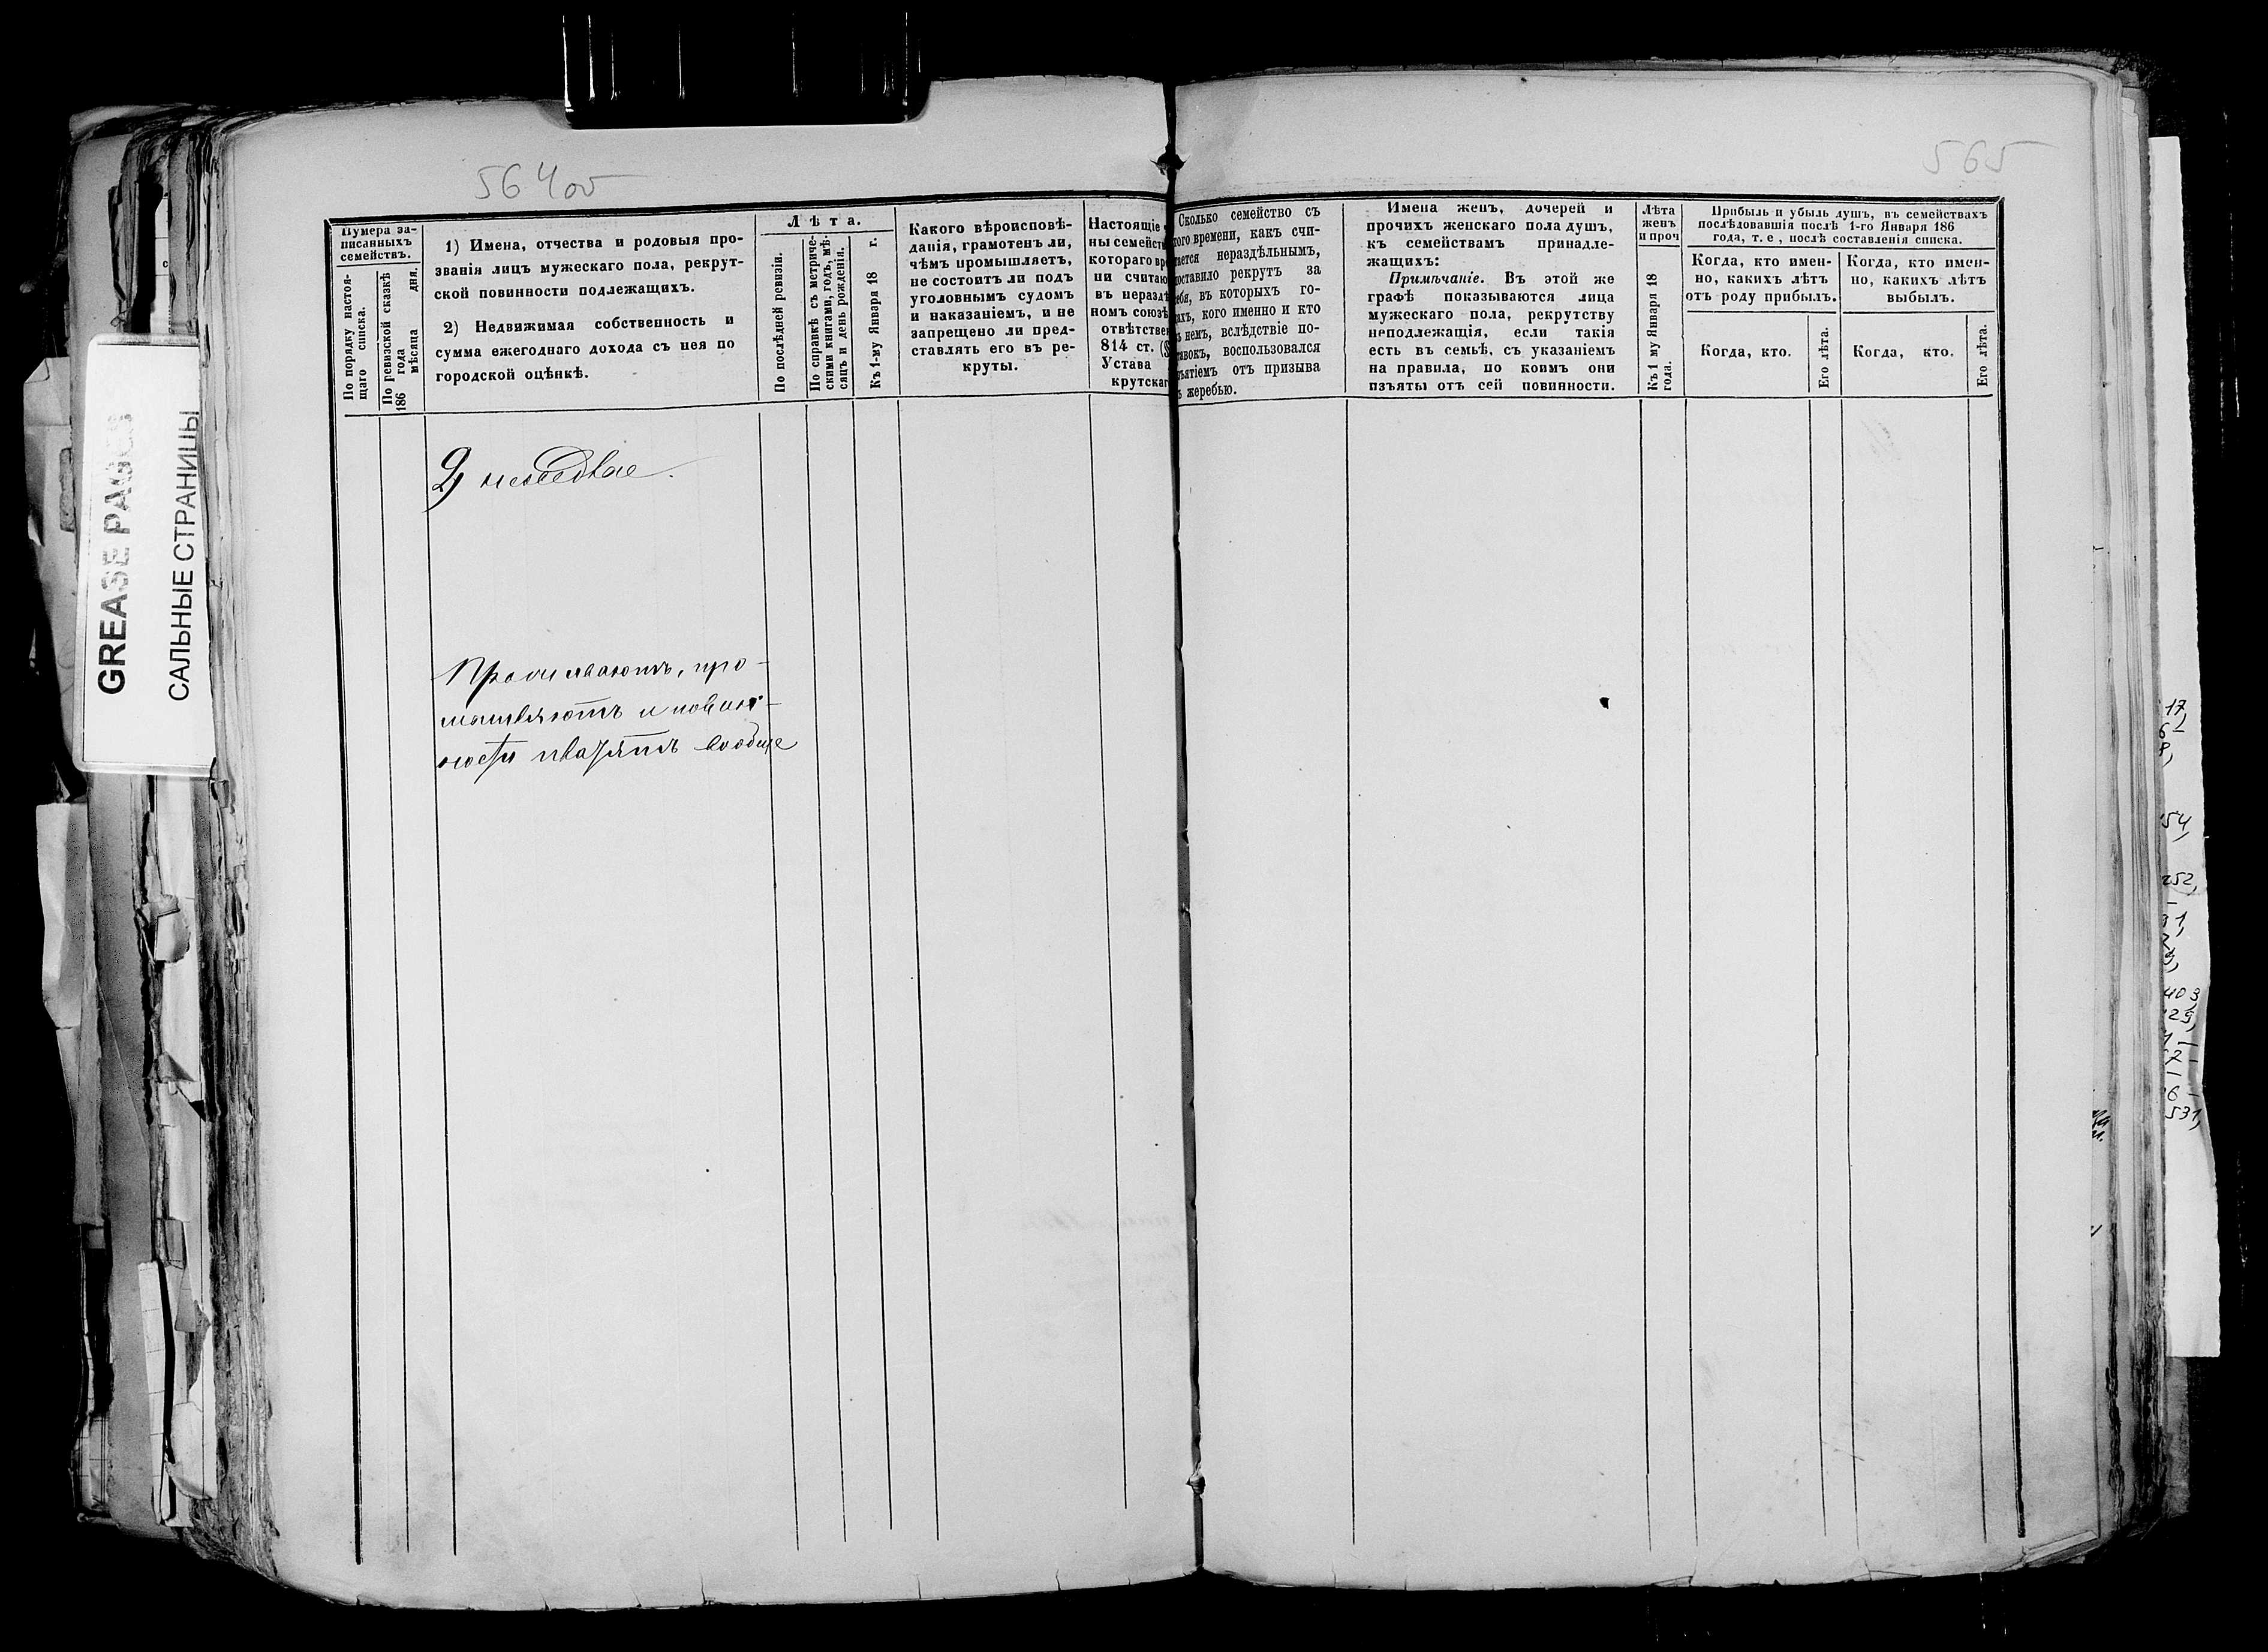 564 об
565
GREASE PAGES
САЛЬНЫЕ СТРАНИЦЫ
Нумера за-
писанныхъ
семействъ.
По порядку настоя-
щаго списка.
По ревизской сказкѣ
186 года мѣсяца дня.
1) Имена, отчества и родовыя про-
званія лицъ мужескаго пола, рекрут-
ской повинности подлежащихъ.
2) Недвижимая собственность и
сумма ежегоднаго дохода съ нея по
городской оцѣнкѣ.
Лѣта.
По послѣдней ревизіи.
По справкѣ съ метриче-
скими книгами, годъ, мѣ-
сяцъ и день рожденія.
Къ 1-му Января 18 г.
Какого вѣроисповѣ-
данія, грамотенъ ли,
чѣмъ промышляетъ,
не состоитъ ли подъ
уголовнымъ судомъ
и наказаніемъ, и не
запрещено ли пред-
ставлять его въ ре-
круты.
Настоящіе
ны семейств
котораго вре
ни считаю
въ нераздѣ
номъ союзѣ
отвѣтствен
814 ст. (§
Устава
крутскаг
Сколько семейство съ
того времени, какъ счи-
тается нераздѣльнымъ,
поставило рекрутъ за
себя, въ которыхъ го-
дахъ, кого именно и кто
въ немъ, вслѣдствіе по-
ставокъ, воспользовался
изъятіемъ отъ призыва
къ жеребью.
Имена женъ, дочерей и
прочихъ женскаго пола душъ,
къ семействамъ принадле-
жащихъ:
Примѣчаніе. Въ этой же
графѣ показываются лица
мужескаго пола, рекрутству
неподлежащія, если такія
есть въ семьѣ, съ указаніемъ
на правила, по коимъ они
изъяты отъ сей повинности.
Лѣта
женъ
и проч
Къ 1 му Января 18
года.
Прибыль и убыль душъ, въ семействахъ
послѣдовавшія послѣ 1-го Января 186
года, т. е, послѣ составленія списка.
Когда, кто имен-
но, какихъ лѣтъ
отъ роду прибылъ.
Когда, кто.
Его лѣта.
Когда, кто имен-
но, какихъ лѣтъ
выбылъ.
Когда, кто.
Его лѣта.
Проживаютъ, про-
мышляютъ и повин-
ности платятъ вообще
17,
54,
252,
531,